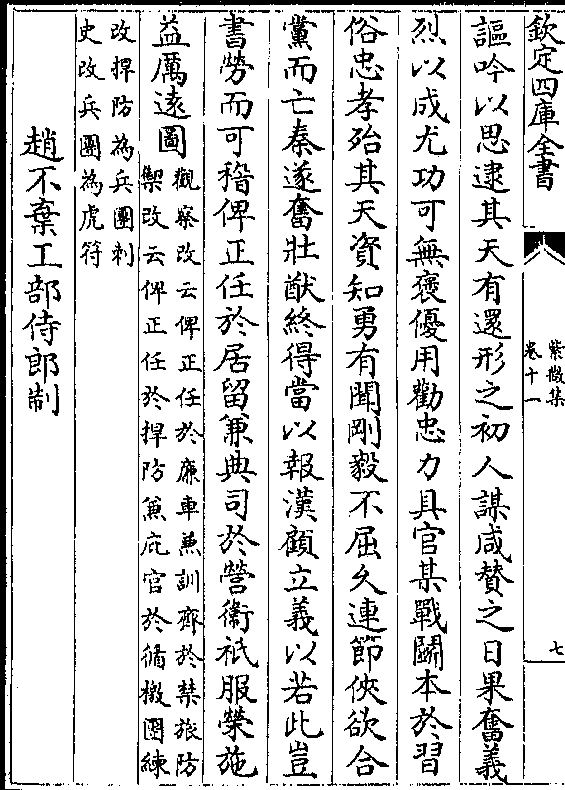 欽定四庫全書
紫微集
卷十一
七
謳吟以思逮其天有還形之初人謀咸贊之日果奮義
烈以成尤功可無褒優用勸忠力具官某戰鬬本於習
俗忠孝殆其天資知勇有聞剛毅不屈久連節俠欲合
黨而亡秦遂奮壯猷終得當以報漢顧立義以若此豈
書勞而可稽俾正任於居留兼典司於營衛祇服榮施
益厲遠圖觀察改云俾正任於廉車兼訓齊於禁旅防
禦改云俾正任於捍防兼庇官於循徼團練
改捍防為兵團刺
史改兵團為虎符
趙不棄工部侍郎制